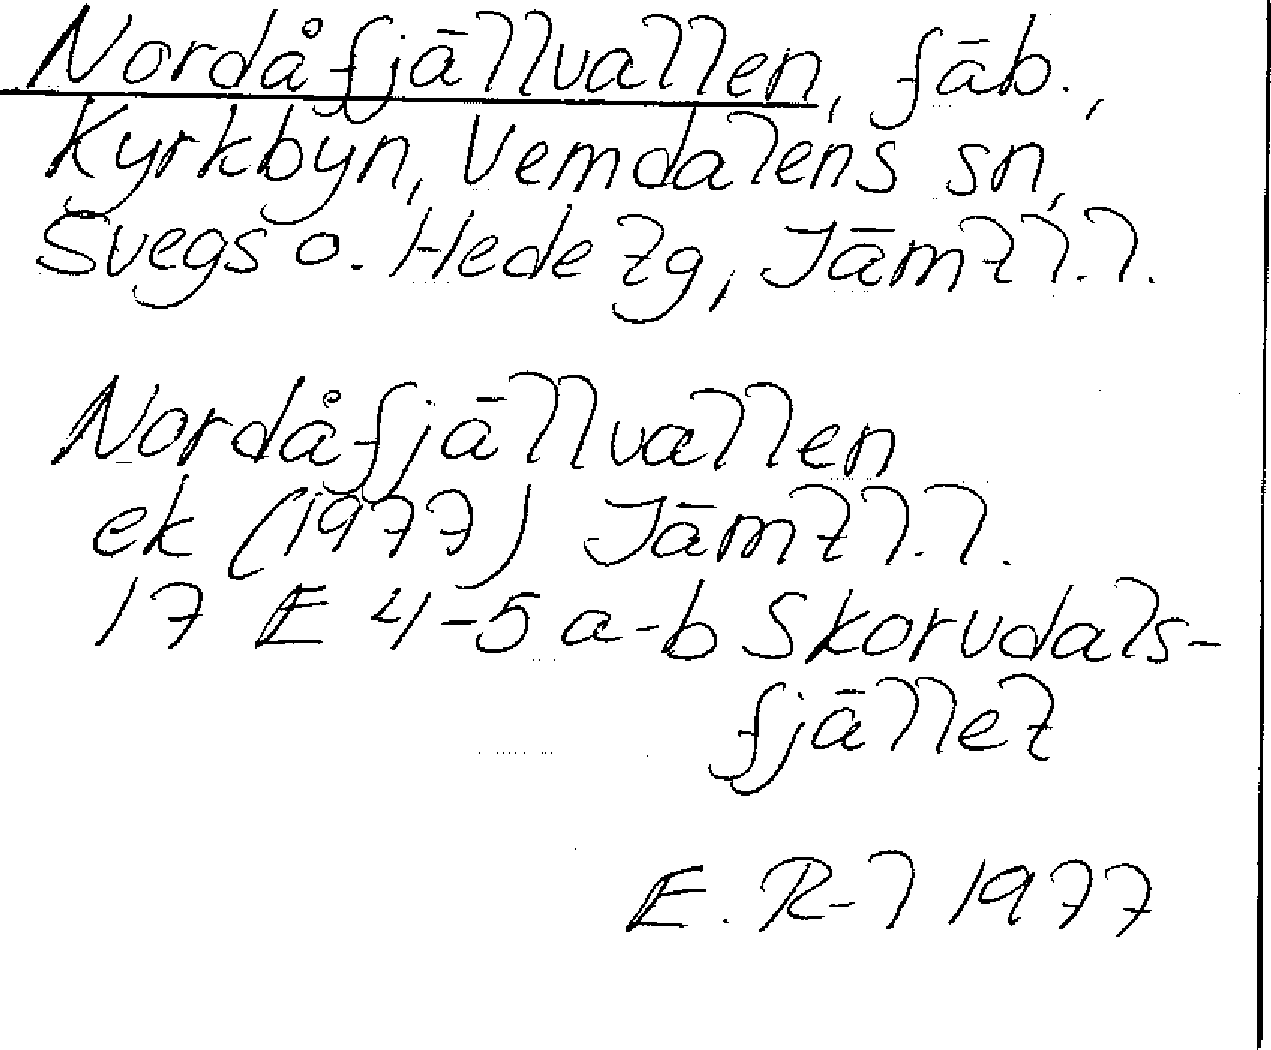 Nordåfjällvallen, fäb.,
Kyrkbyn, Vemdalens sn,
Svegs o. Hede tg, Jämtl.l.
Nordåfjällvallen
ek (1977) Jämtl.l.
17 E 4-5 a-b Skorvdals-
fjället
E. R-l 1977